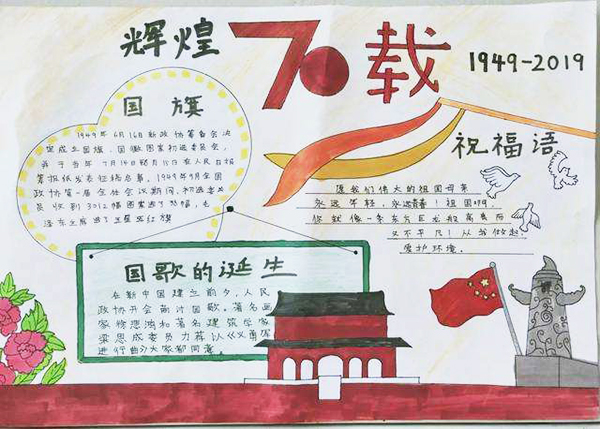 辉煌70载
1949-2019
国旗
1949年6月16日新政协筹备会决
定成立国旗、国徽图案初选委员会,
并于当年7月14日至8月15日在人民日报
等报纸发表征稿启事。1949年9月全国
政协第一届全体会议期间,初选委
员收到3012幅图案选了38幅,毛
泽东主席选了五星红旗
祝福语
愿我们伟大的祖国母亲
永远年轻,永远青春!祖国啊,
你就像一条东方巨龙般高贵而
又不平凡!从我做起
爱护环境。
国歌的诞生
在新中国建立前夕,人民
政协开会商讨国歌。著名画
家徐悲鸿和著名建筑学家
梁思成委员力荐以《义勇军
进行曲》大家都同意。